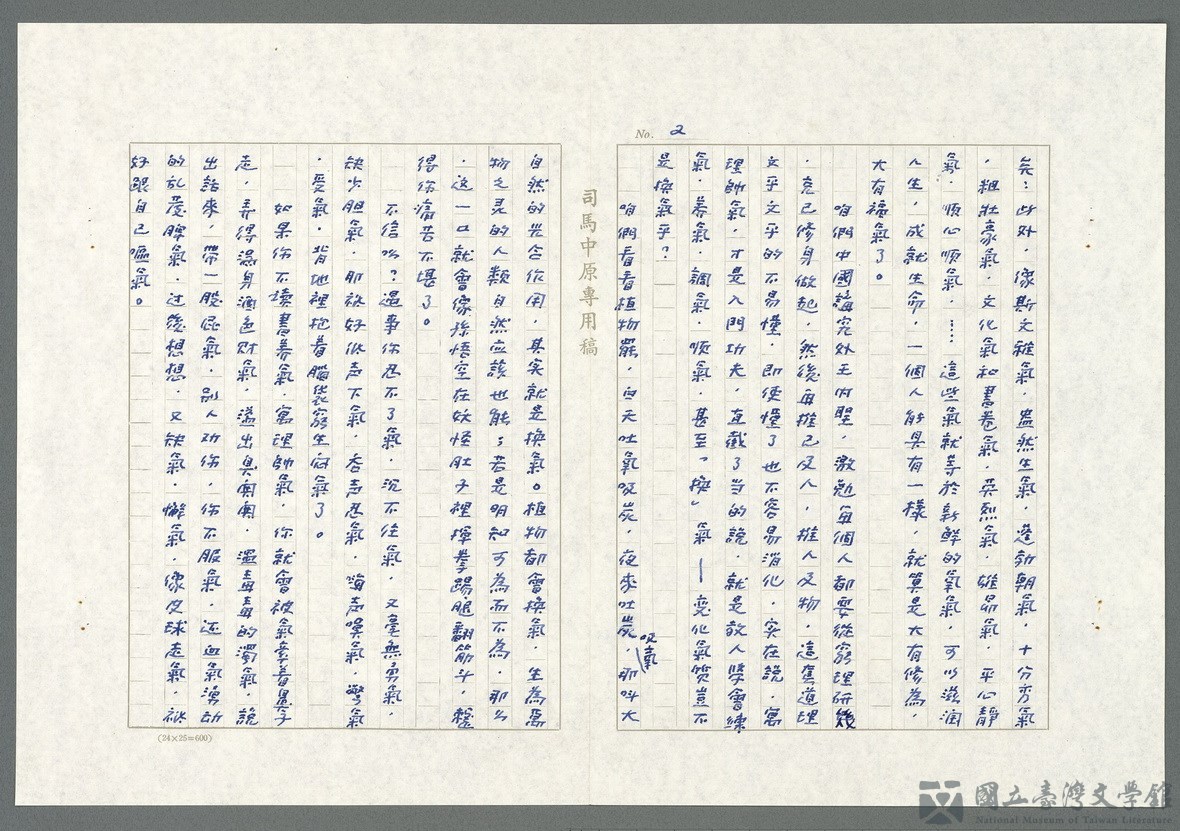 No. 2
矣:此外,像斯文雅氣,盎然生氣,蓬勃朝氣,十分秀氣
,粗壯豪氣,文化氣和書卷氣,英烈氣,雄昂氣,平心靜
氣,順心順氣,……這些氣就等於新鮮的氧氣,可以滋潤
人生,成就生命,一個人能具有一樣,就算是大有修為,
大有福氣了。
咱們中國講究外王內聖,激勉每個人都要從窮理研幾
,克己修身做起,然後再推己及人,推人及物,這套道理
文乎文乎的不易懂,即使懂了也不容易消化,實在說,寓
理帥氣,才是入門功夫,直截了当的說,就是教人學會練
氣,養氣,調氣,順氣,甚至「換」氣——変化氣質豈不
是換氣乎?
咱們看看植物罷,白天吐氧吸炭,夜來吐炭吸氧,那叫大
司馬中原專用稿
自然的光合作用,其实就是換氣。植物都會換氣,生為萬
物之灵的人類自然应該也能;若是明知可為而不為,那么
,這一口就會像孫悟空在妖怪肚子裡揮拳踢腿翻筋斗,整
得你痛苦不堪了。
不信吆?遇事你忍不了氣,沉不住氣,又毫無勇氣,
缺少胆氣,那祇好低声下氣,吞声忍氣,唉声嘆氣,彆氣
,受氣,背地裡抱着腦袋窮生悶氣了。
如果你不讀書養氣,寓理帥氣,你就會被氣牽着鼻子
走,弄得滿身酒色财氣,溢出臭奥奥,濕毒毒的濁氣,說
出話來,帶一股屁氣,别人功你,你不服氣,还血氣湧动
的乱發脾氣,过後想想,又缺氣,懈氣,像皮球走氣,祇
好跟自己嘔氣。
(24×25=600)
國立臺灣文學館
National Museum of Taiwan Literature